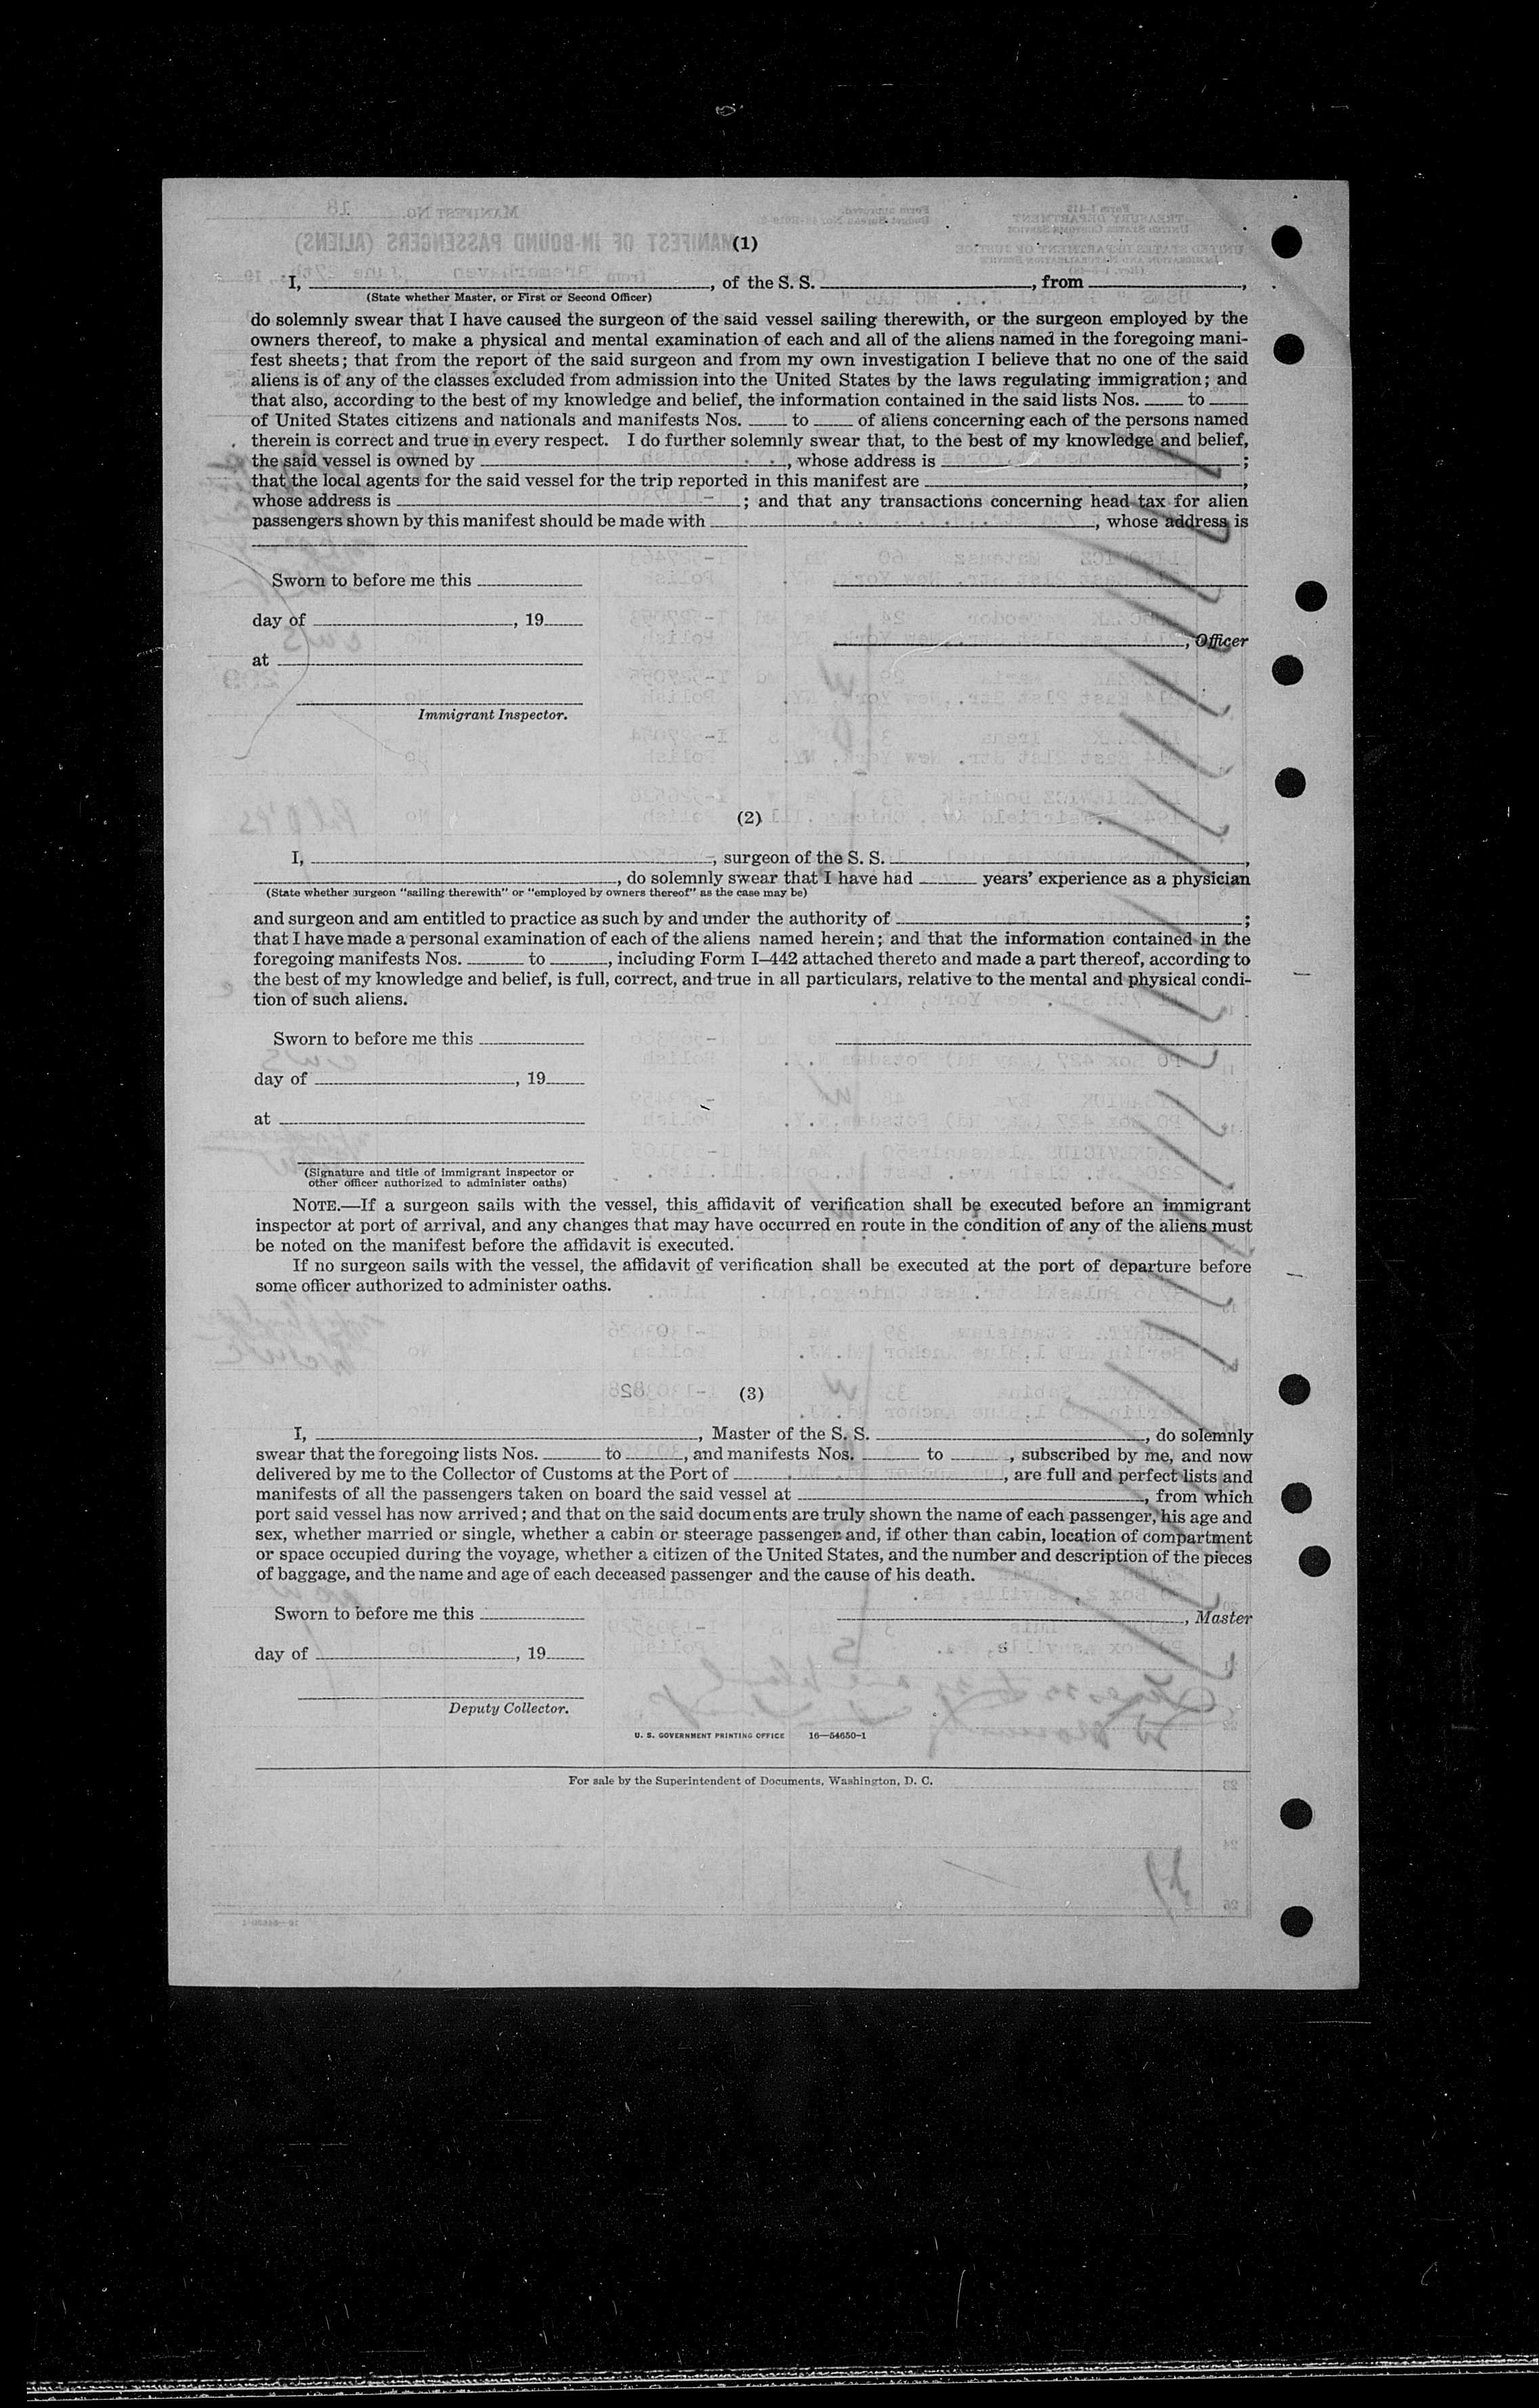 (1)
I, , of the S. S. , from ,
(State whether Master, or First or Second Officer)
do solemnly swear that I have caused the surgeon of the said vessel sailing therewith, or the surgeon employed by the
owners thereof, to make a physical and mental examination of each and all of the aliens named in the foregoing mani-
fest sheets; that from the report of the said surgeon and from my own investigation I believe that no one of the said
aliens is of any of the classes excluded from admission into the United States by the laws regulating immigration; and
that also, according to the best of my knowledge and belief, the information contained in the said lists Nos. to
of United States citizens and nationals and manifests Nos. to of aliens concerning each of the persons named
therein is correct and true in every respect. I do further solemnly swear that, to the best of my knowledge and belief,
the said vessel is owned by , whose address is ;
that the local agents for the said vessel for the trip reported in this manifest are ,
whose address is ; and that any transactions concerning head tax for alien
passengers shown by this manifest should be made with , whose address is
Sworn to before me this
day of , 19
, Officer
at
Immigrant Inspector.
(2)
I, , surgeon of the S. S. ,
, do solemnly swear that I have had years' experience as a physician
(State whether surgeon "sailing therewith" or "employed by owners thereof" as the case may be)
and surgeon and am entitled to practice as such by and under the authority of ;
that I have made a personal examination of each of the aliens named herein; and that the information contained in the
foregoing manifests Nos. to , including Form I–442 attached thereto and made a part thereof, according to
the best of my knowledge and belief, is full, correct, and true in all particulars, relative to the mental and physical condi-
tion of such aliens.
Sworn to before me this
day of , 19
at
(Signature and title of immigrant inspector or
other officer authorized to administer oaths)
NOTE.—If a surgeon sails with the vessel, this affidavit of verification shall be executed before an immigrant
inspector at port of arrival, and any changes that may have occurred en route in the condition of any of the aliens must
be noted on the manifest before the affidavit is executed.
If no surgeon sails with the vessel, the affidavit of verification shall be executed at the port of departure before
some officer authorized to administer oaths.
(3)
I, , Master of the S. S. , do solemnly
swear that the foregoing lists Nos. to , and manifests Nos. to , subscribed by me, and now
delivered by me to the Collector of Customs at the Port of , are full and perfect lists and
manifests of all the passengers taken on board the said vessel at , from which
port said vessel has now arrived; and that on the said documents are truly shown the name of each passenger, his age and
sex, whether married or single, whether a cabin or steerage passenger and, if other than cabin, location of compartment
or space occupied during the voyage, whether a citizen of the United States, and the number and description of the pieces
of baggage, and the name and age of each deceased passenger and the cause of his death.
Sworn to before me this
, Master
day of , 19
Deputy Collector.
U. S. GOVERNMENT PRINTING OFFICE 16—54650-1
For sale by the Superintendent of Documents, Washington, D. C.